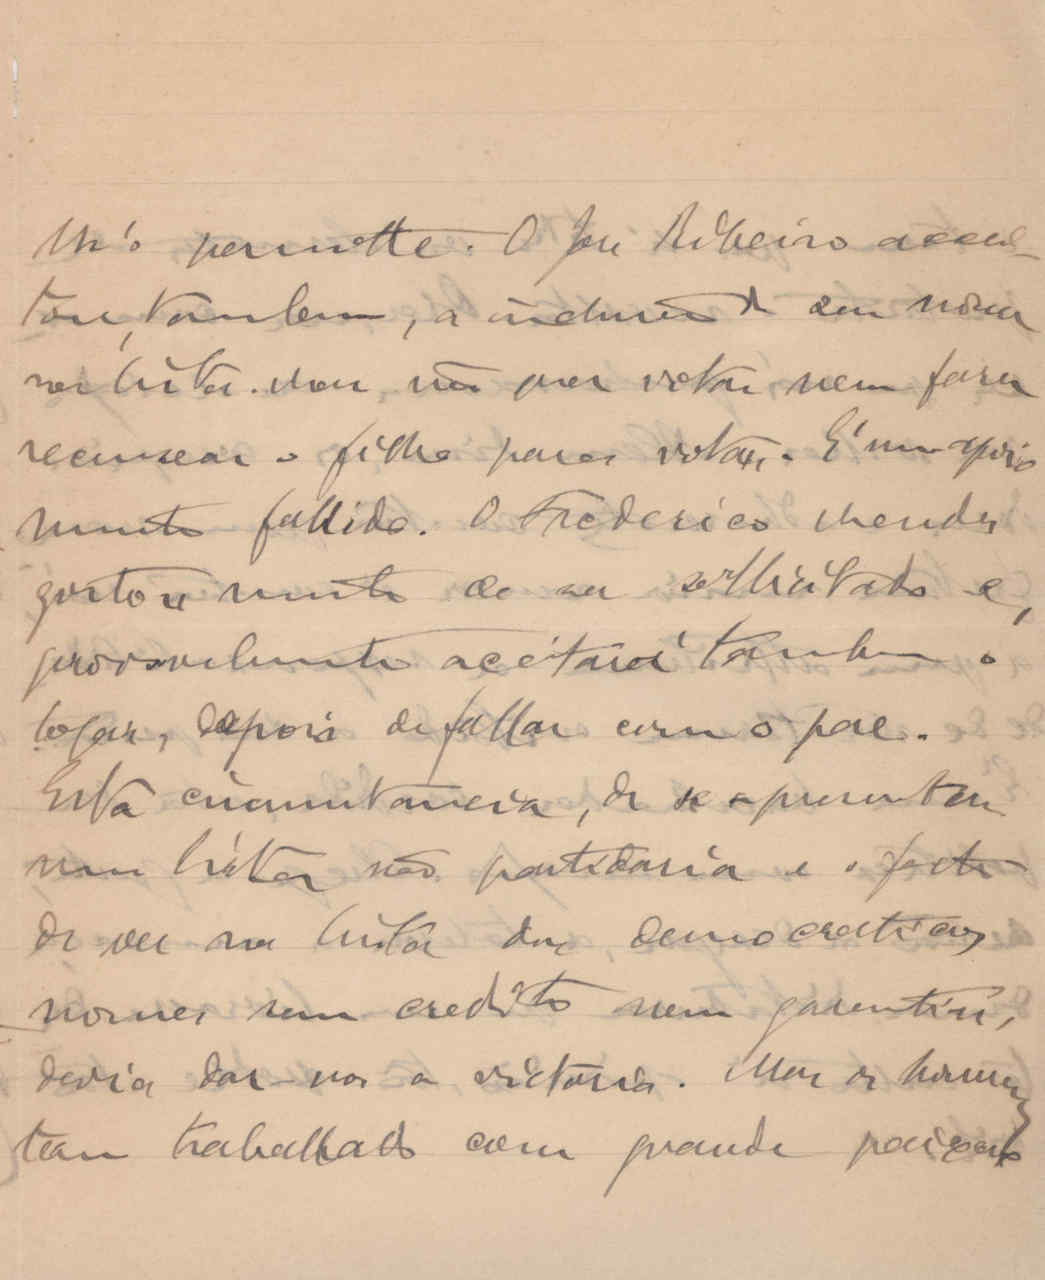 lh'o permitte. O José Ribeiro accei-
tou, tambem, a inclusão do seu nome
na lista. Mas não quer votar nem fazer
recensear o filho para votar. É um apoio
muito fallido. O Frederico Mendes
gostou muito de ser sollicitado e,
provavelmente acceitará tambem o
logar, depois de fallar com o pae.
Esta circumstancia, de se apresentar
uma lista não partidaria e o facto
de ver na lista dos democraticos
nomes sem credito nem garantias,
devia dar-nos a victoria. Mas os homens
tem trabalhado com grande